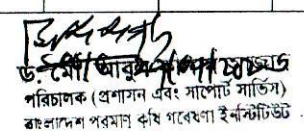 ড. মোঃ আবুল
পরিচালক (প্রশাসন এবং সাপোর্ট সার্ভিস)
বাংলাদেশ পরমাণু কৃষি গবেষণা ইনস্টিটিউট